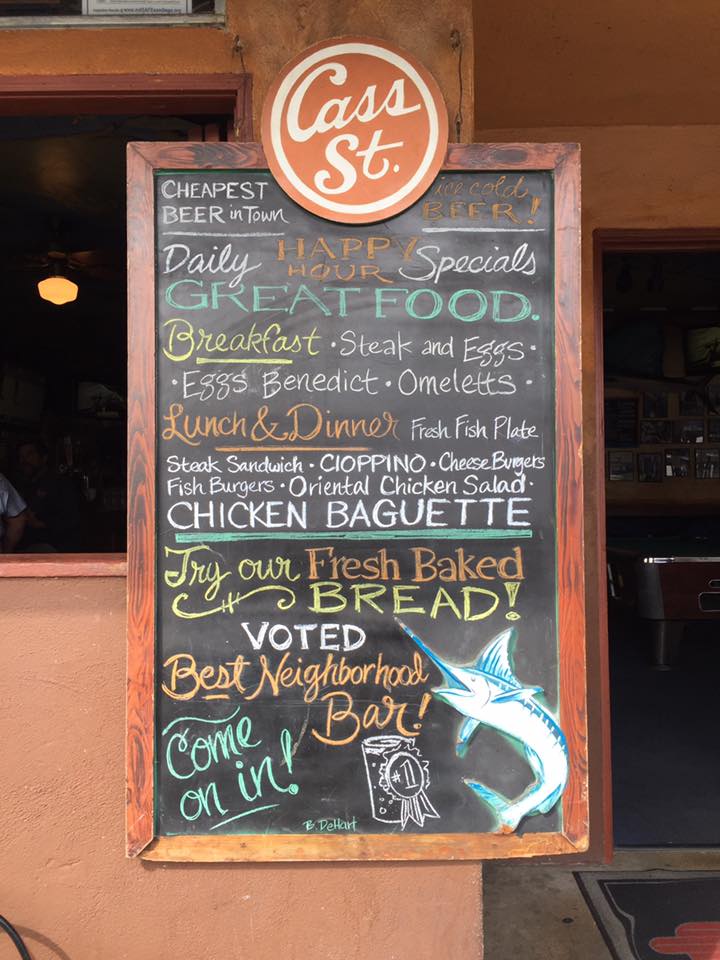 Cass
St.
CHEAPEST
BEER in Town
ice cold
BEER!
Daily HAPPY HOUR Specials
GREAT FOOD.
Breakfast · Steak and Eggs ·
· Eggs Benedict · Omeletts ·
Lunch & Dinner Fresh Fish Plate
Steak Sandwich · CIOPPINO · Cheese Burgers
Fish Burgers · Oriental Chicken Salad ·
CHICKEN BAGUETTE
Try our Fresh Baked
BREAD!
VOTED
Best Neighborhood
Bar!
Come
on in!
#1
B. DeHart